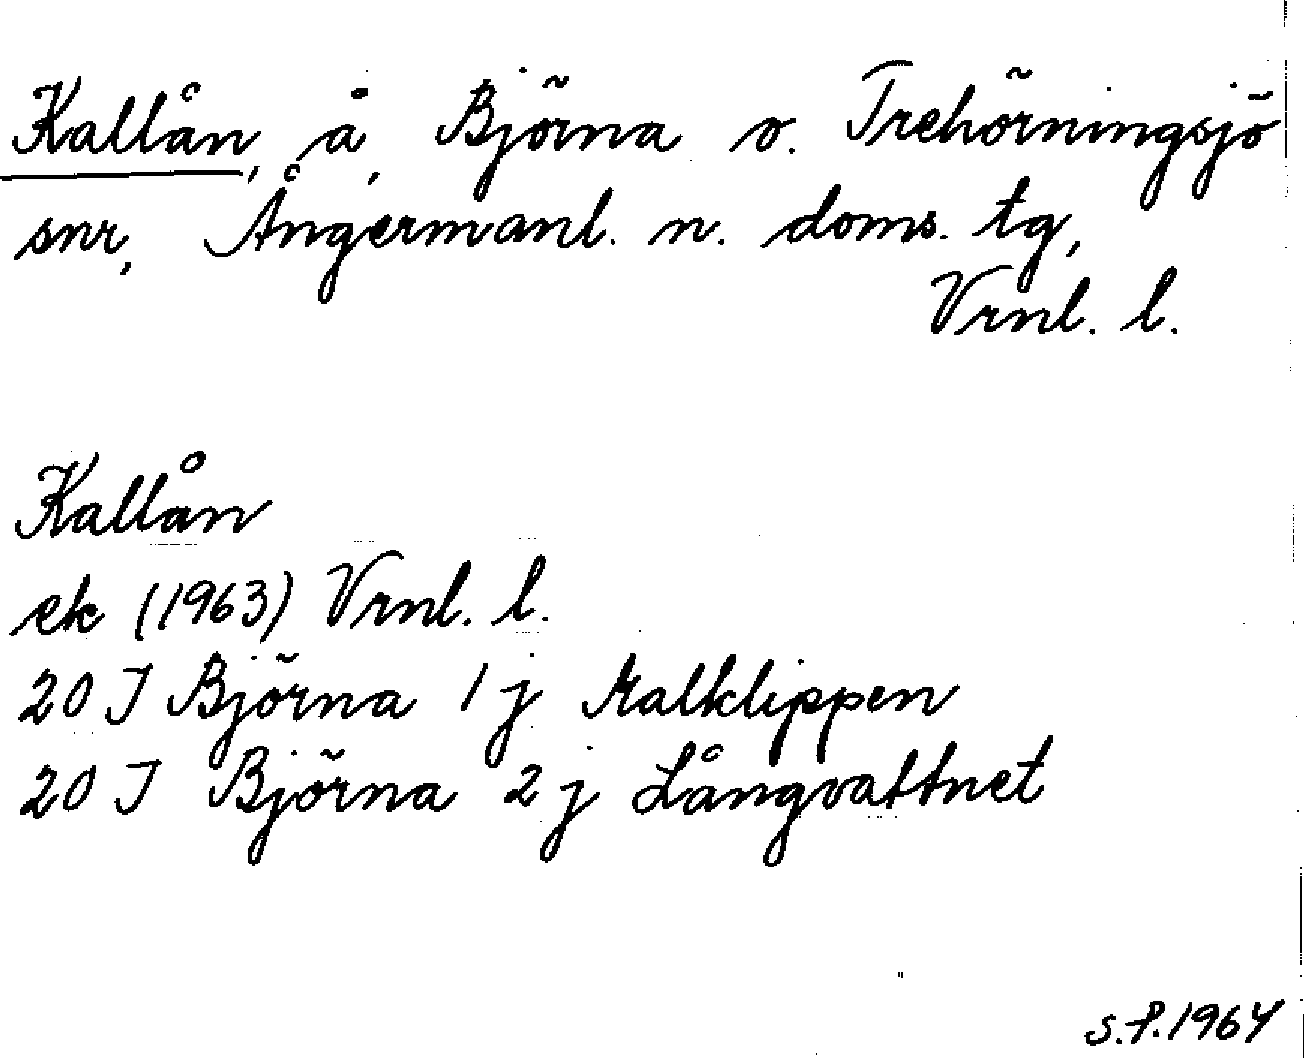 Kallån, å, Björna o. Trehörningsjö
snr, Ångermanl. n. doms. tg,
Vrnl. l.
Kallån
ek (1963) Vrnl. l.
20 I Björna 1 j Kalklippen
20 I Björna 2 j Långvattnet
S.P. 1964